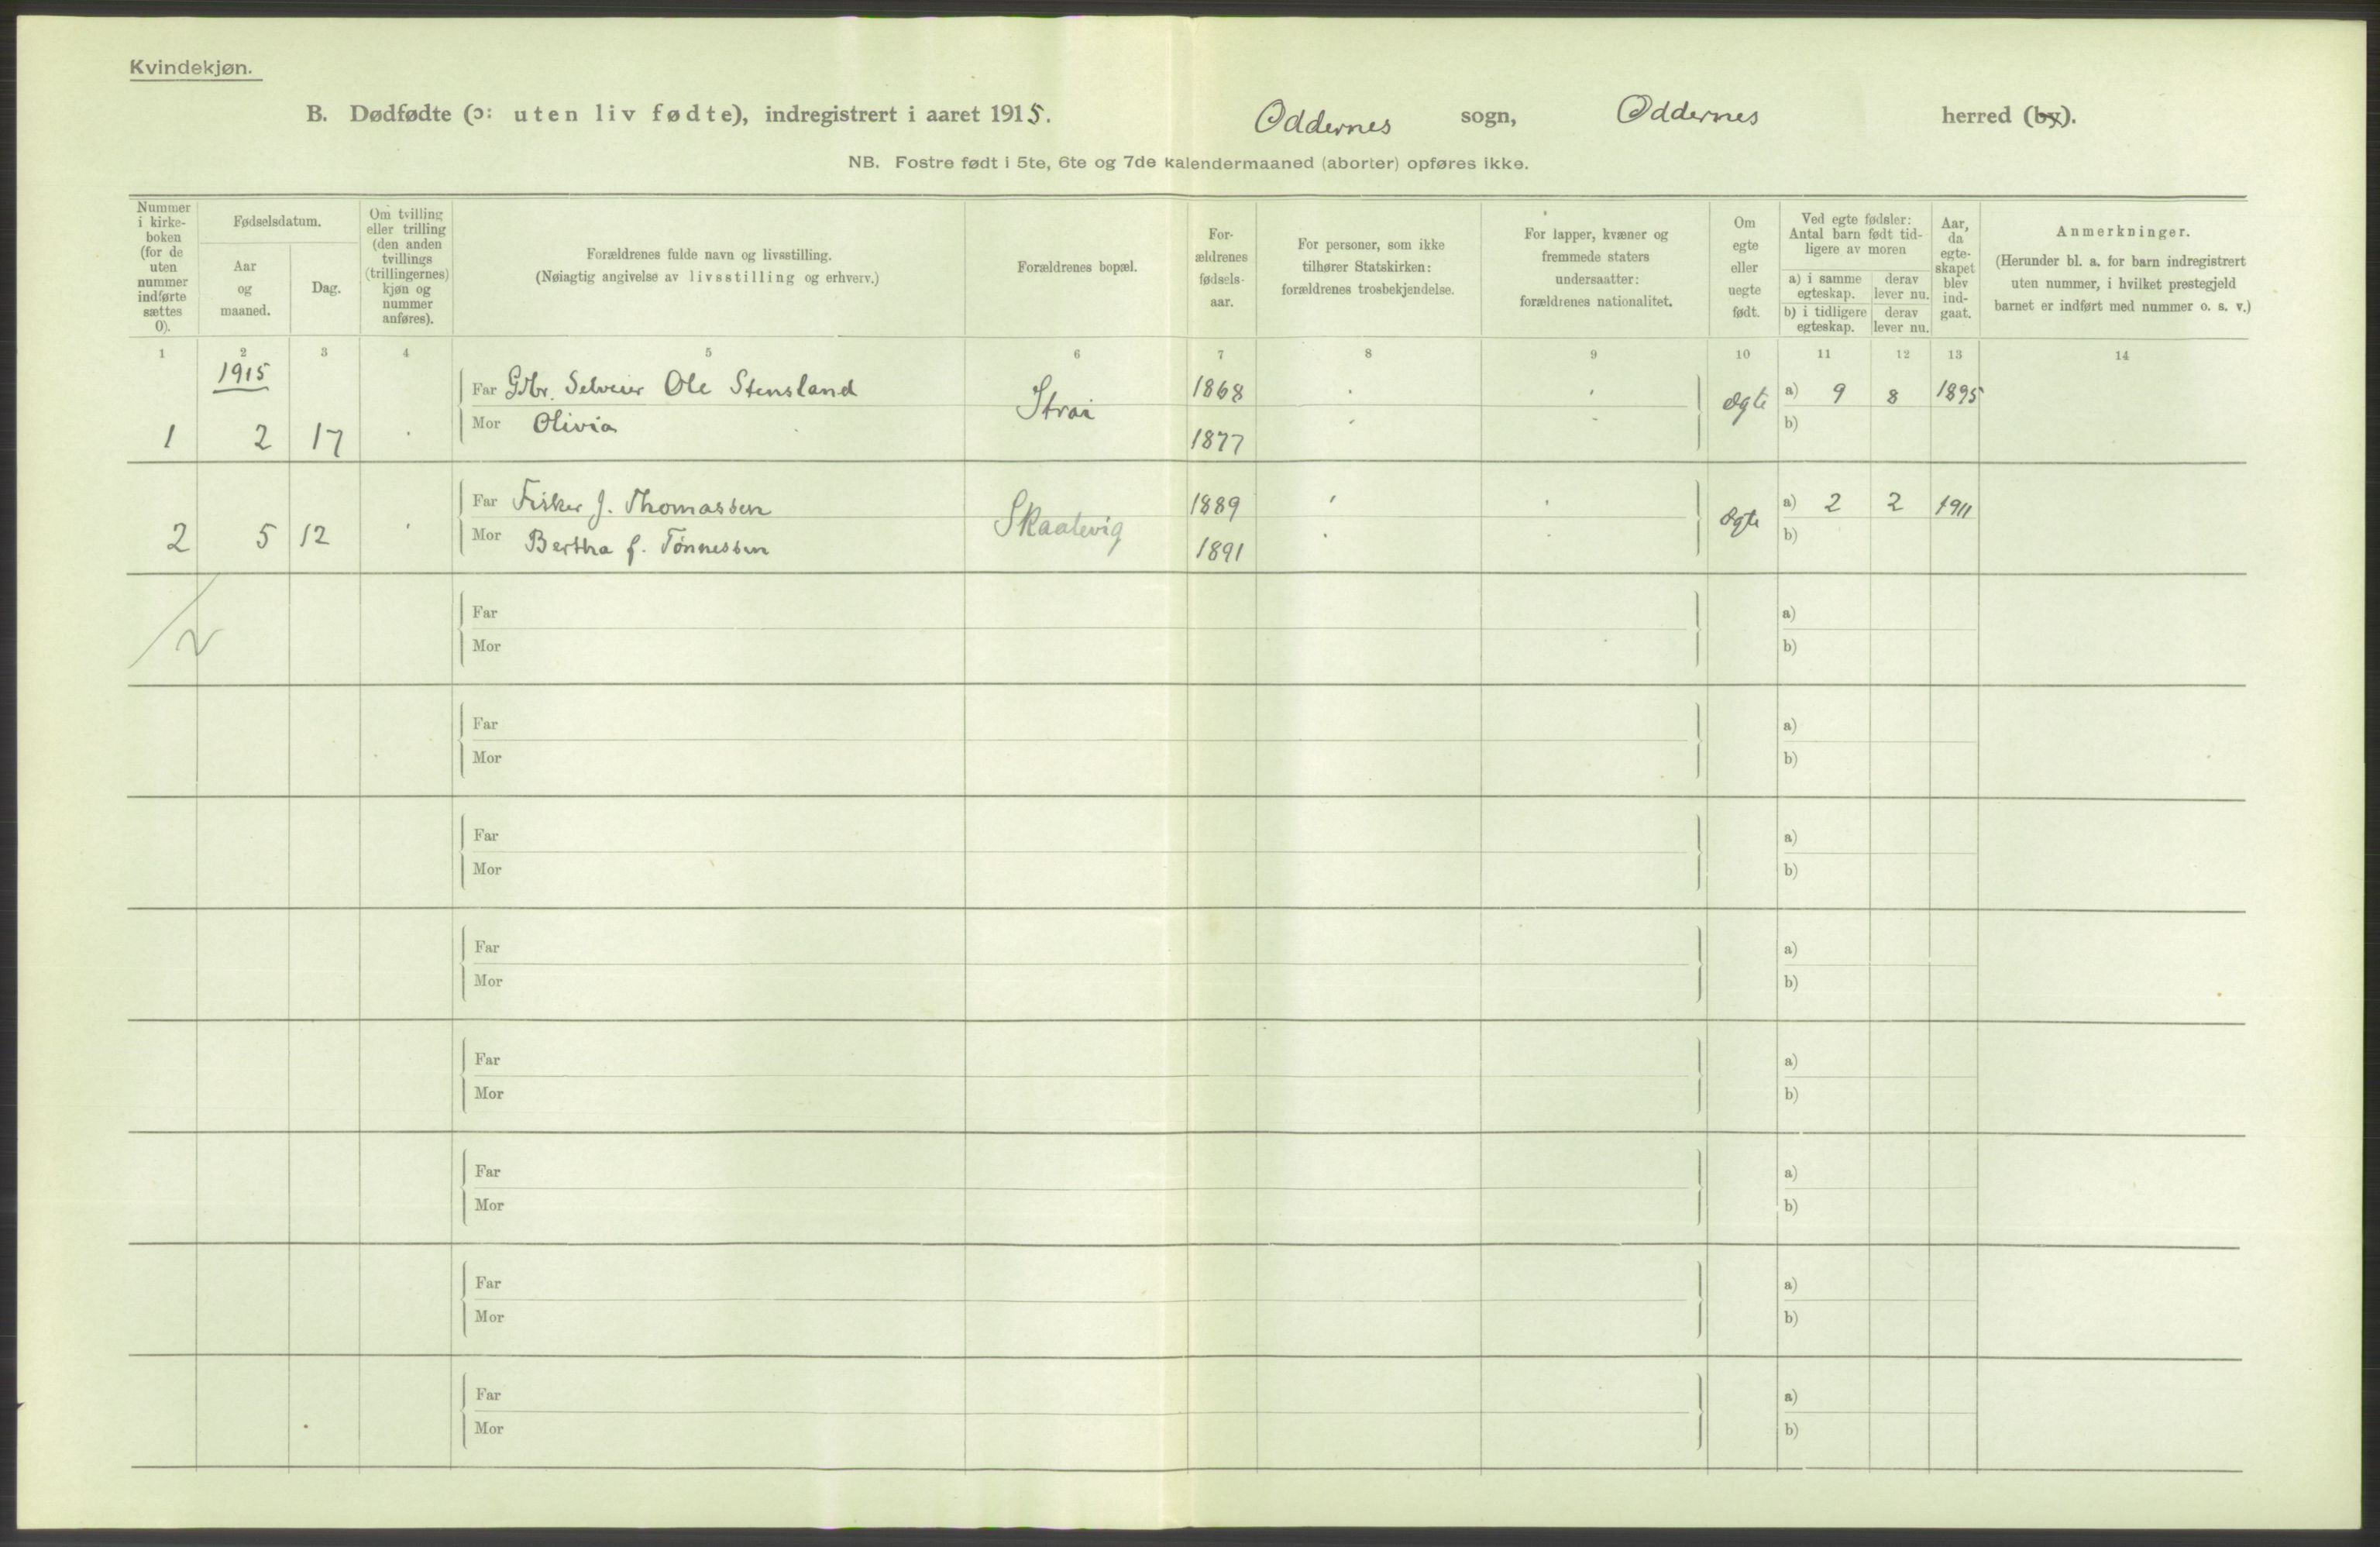 Kvindekjøn.
B. Dødfødte (ɔ: uten liv fødte), indregistrert i aaret 1915. Oddernes sogn, Oddernes herred (by).
NB. Fostre født i 5te, 6te og 7de kalendermaaned (aborter) opføres ikke.
Nummer i kirke-boken (for de uten nummer indførte sættes 0).
Fødselsdatum.
Aar og maaned.
Dag.
Om tvilling eller trilling (den anden tvillings (trillingernes) kjøn og nummer anføres).
Forældrenes fulde navn og livsstilling.
(Nøiagtig angivelse av livsstilling og erhverv.)
Forældrenes bopæl.
For-ældrenes fødsels-aar.
For personer, som ikke tilhører Statskirken: forældrenes trosbekjendelse.
For lapper, kvæner og fremmede staters undersaatter: forældrenes nationalitet.
Om egte eller uegte født.
Ved egte fødsler: Antal barn født tid-ligere av moren
a) i samme egteskap.
derav lever nu.
b) i tidligere egteskap.
derav lever nu.
Aar, da egte-skapet blev ind-gaat.
Anmerkninger.
(Herunder bl. a. for barn indregistrert uten nummer, i hvilket prestegjeld barnet er indført med nummer o. s. v.)
1 2 3 4 5 6 7 8 9 10 11 12 13 14
1915
Far Gbr. Selveier Ole Stensland Strai 1868 ægte a) 9 8 1895
1 2 17 Mor Olivia 1877 b)
Far Fisker J. Thomassen Skaalevig 1889 ægte a) 2 2 1911
2 5 12 Mor Bertha f. Tønnessen 1891 b)
Far a)
2 Mor b)
Far a)
Mor b)
Far a)
Mor b)
Far a)
Mor b)
Far a)
Mor b)
Far a)
Mor b)
Far a)
Mor b)
Far a)
Mor b)